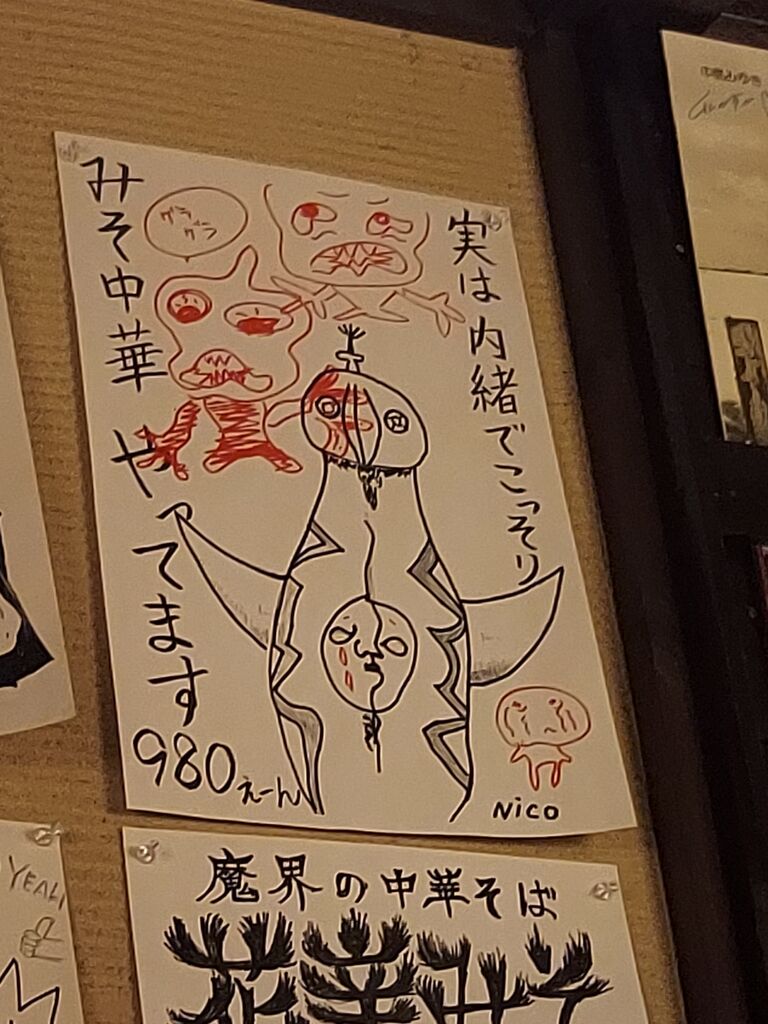 実は内緒でこっそり
みそ中華
やってます
980えーん
グラ
グラ
NICO
魔界の中華そば
YEAH